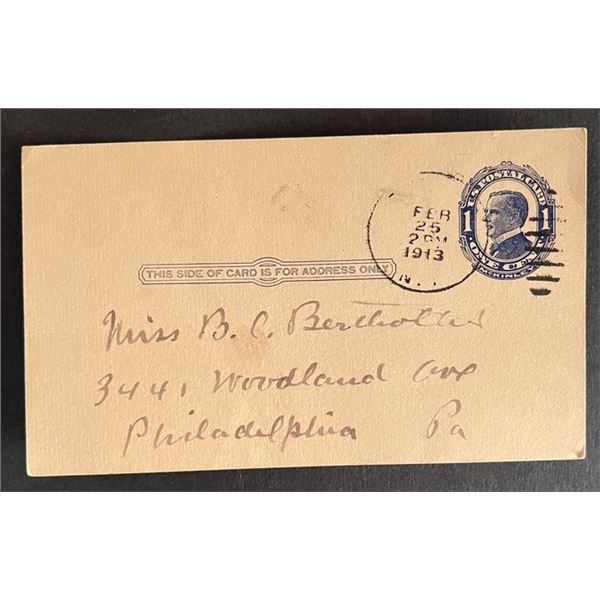 U.S. POSTAL CARD
1 1
ONE CENT
McKINLEY
FEB
25
2 PM
1913
N.
THIS SIDE OF CARD IS FOR ADDRESS ONLY
Miss B. C.
3441 Woodland Ave
Philadelphia Pa